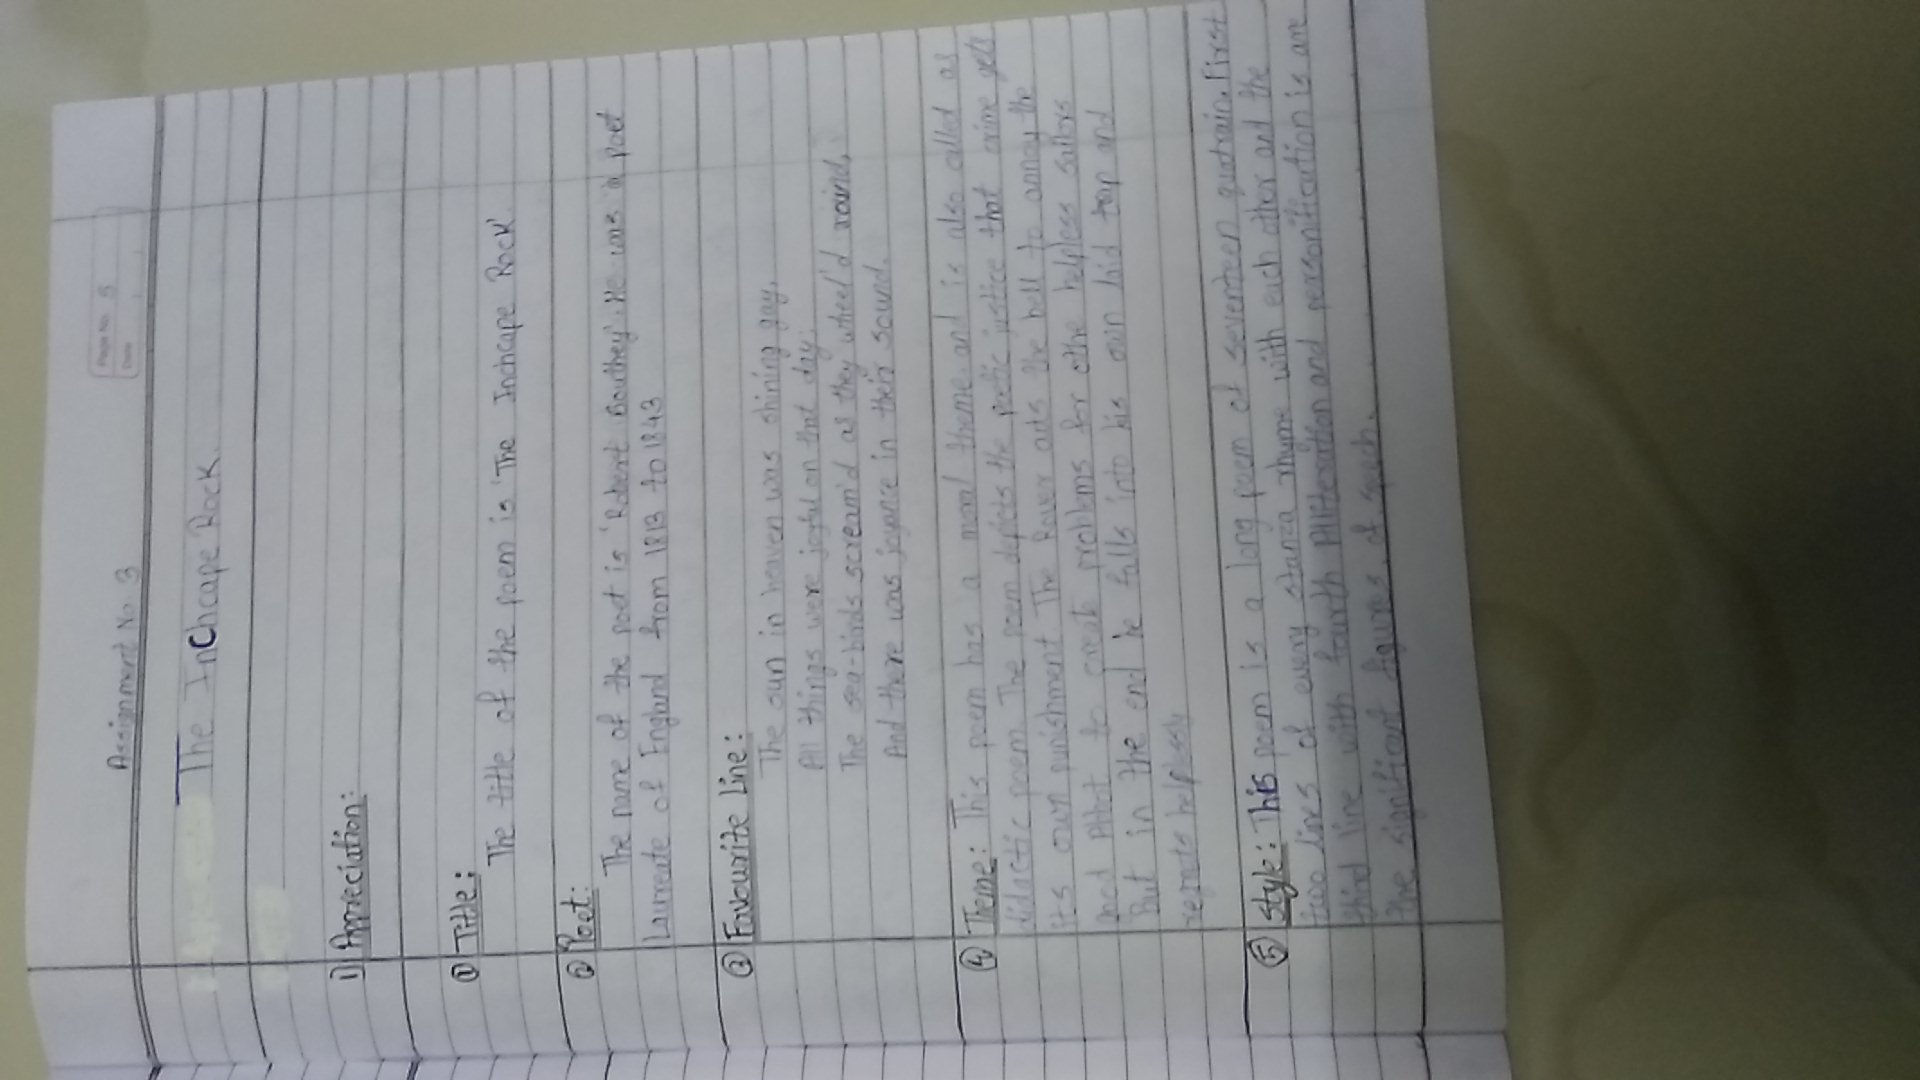 Page No. 5
Date
Assignment No. 3
The Inchcape Rock.
1) Appreciation:
① Title:
The title of the poem is 'The Inchcape Rock'.
② Poet:
The name of the poet is 'Robert Southey'. He was a poet
Laureate of England from 1813 to 1843
③ Favourite Line:
The sun in heaven was shining gay,
All things were joyful on that day;
The sea-birds scream'd as they wheel'd round,
And there was joyance in their sound.
④ Theme: This poem has a moral theme and is also called as
didactic poem. The poem depicts the poetic justice that crime gets
its own punishment. The Rover cuts the bell to annoy the
and Abbot to create problems for othe helpless sailors
But in the end he falls into his own laid trap and
helplessly
⑤ Style: This poem is a long poem of seventeen quatrain. First
two lines of every stanza rhyme with each other and the
third line with fourth Alliteration and personification is are
the significant figures of speech.